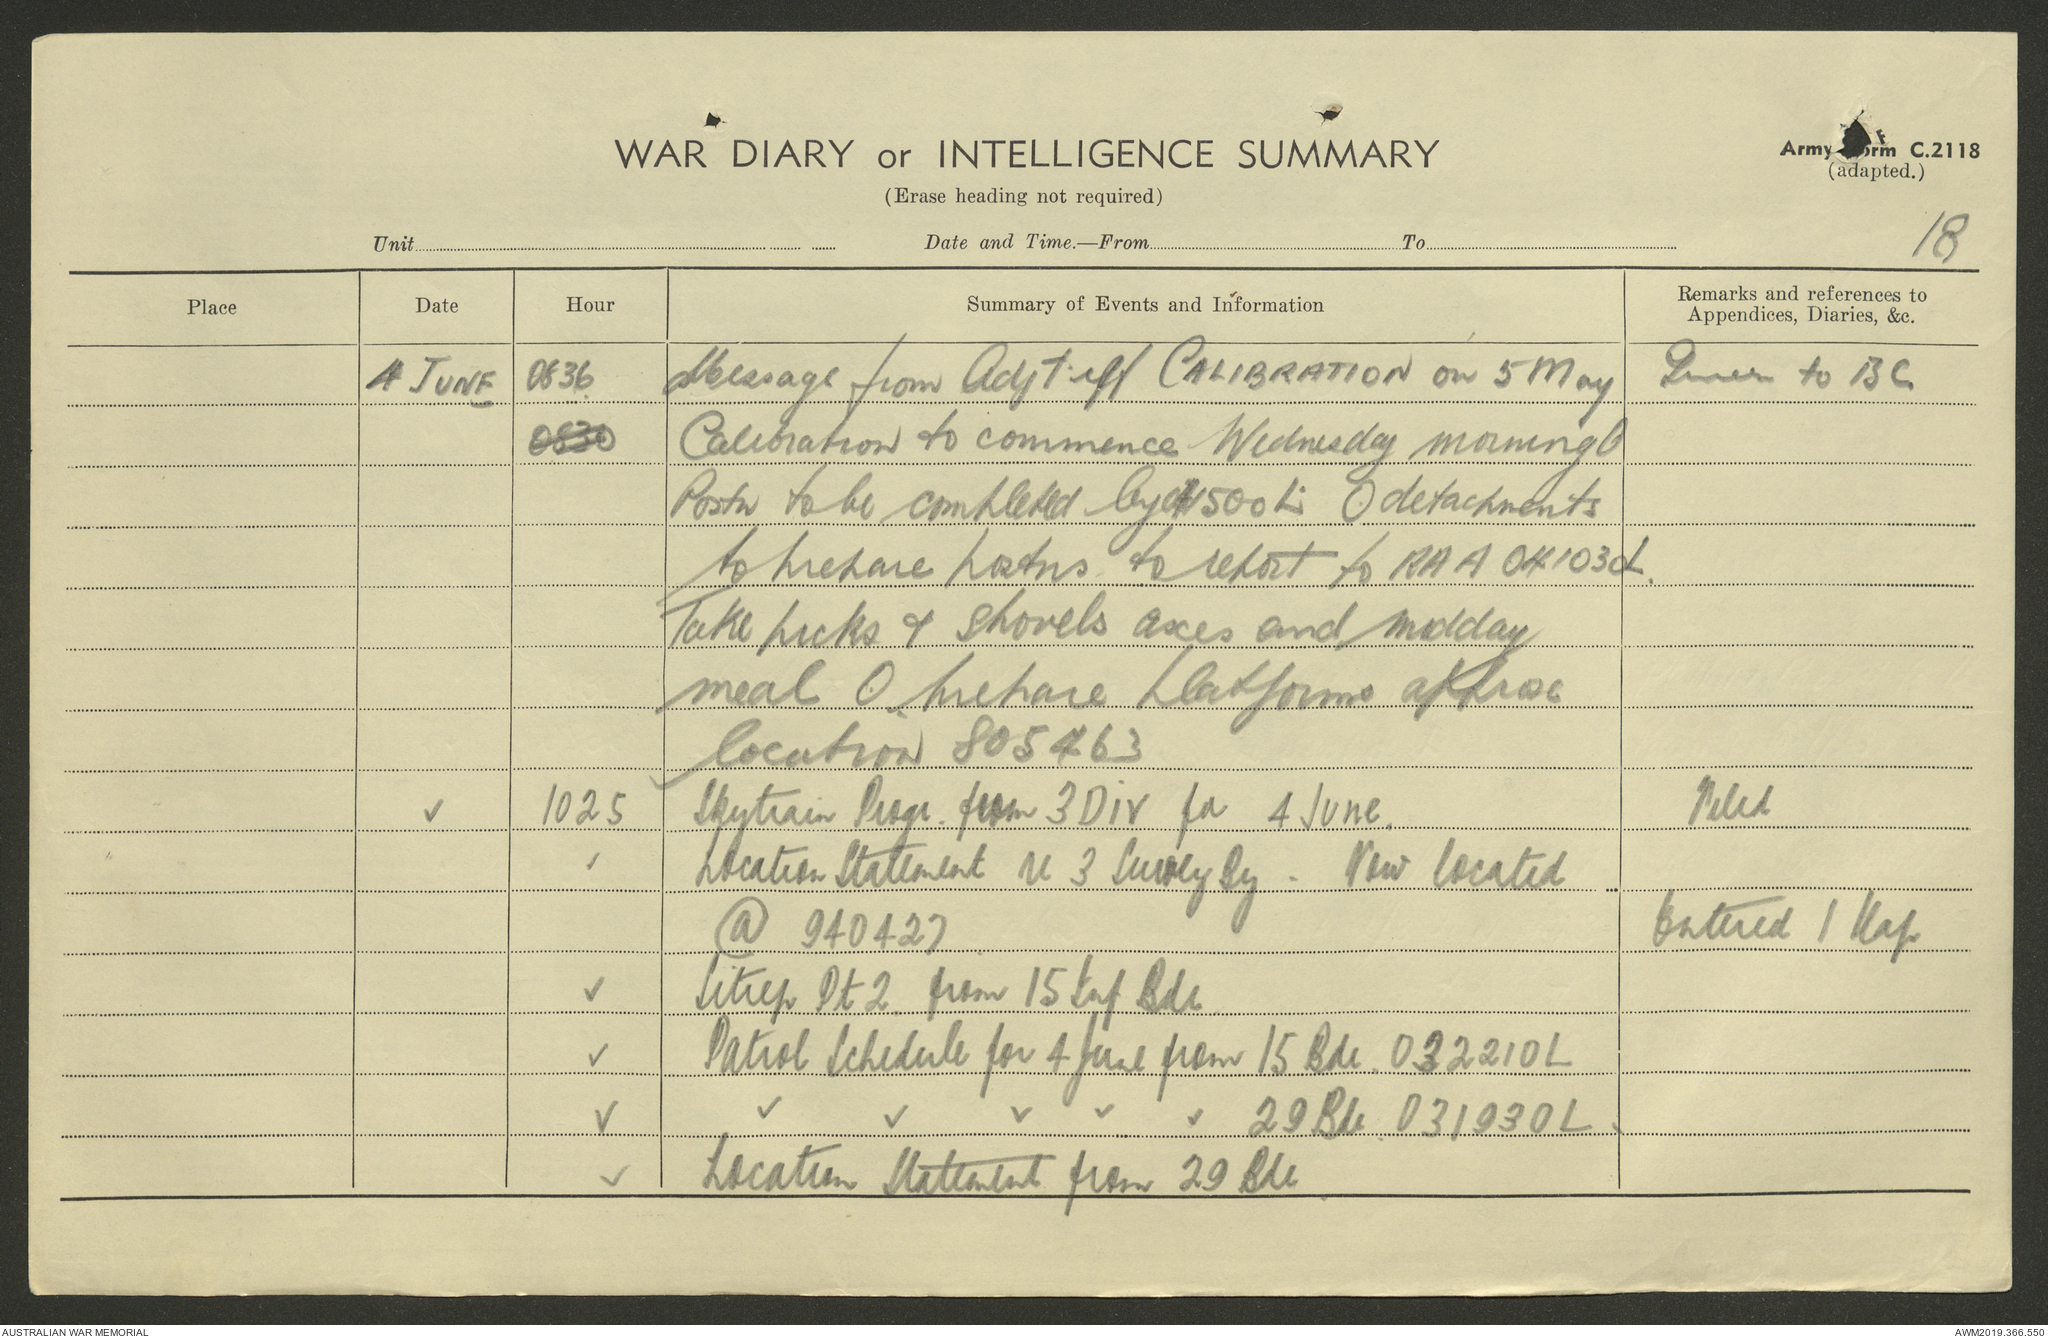 WAR DIARY or INTELLIGENCE SUMMARY
(Erase heading not required)
Army Form C.2118
(adapted.)
18
Unit Date and Time.—From To
Place Date Hour Summary of Events and Information Remarks and references to Appendices, Diaries, &c.
4 JUNE 0836 Message from Adjt CALIBRATION on 5 May to BC
0830 Calibration to commence Wednesday morning
Postn to be completed by 1500 detachments
to prepare postns to report to RAA 041030L
Take picks & shovels axes and midday
meal prepare platforms approx
location 805463
✓ 1025 Skytrain Progr. from 3 Div for 4 June.
✓ Location Statement 3 Survey By - Now located
@ 940427 Entered 1 Map
✓ Sitrep Pt 2 from 15 Inf Bde
✓ Patrol Schedule for 4 June from 15 Bde. 032210L
✓ ✓ ✓ ✓ ✓ ✓ 29 Bde. 031930L
✓ Location Statement from 29 Bde
AUSTRALIAN WAR MEMORIAL
AWM2019.366.550